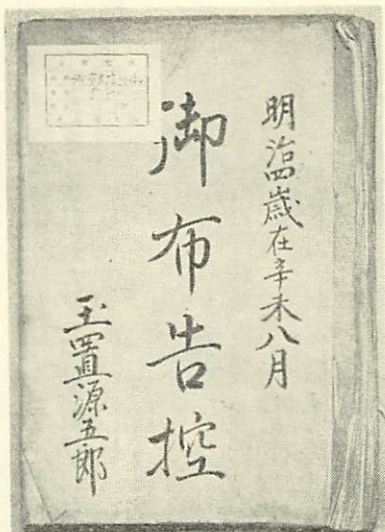 明治四歳在辛未八月
御布告控
玉置源五郎